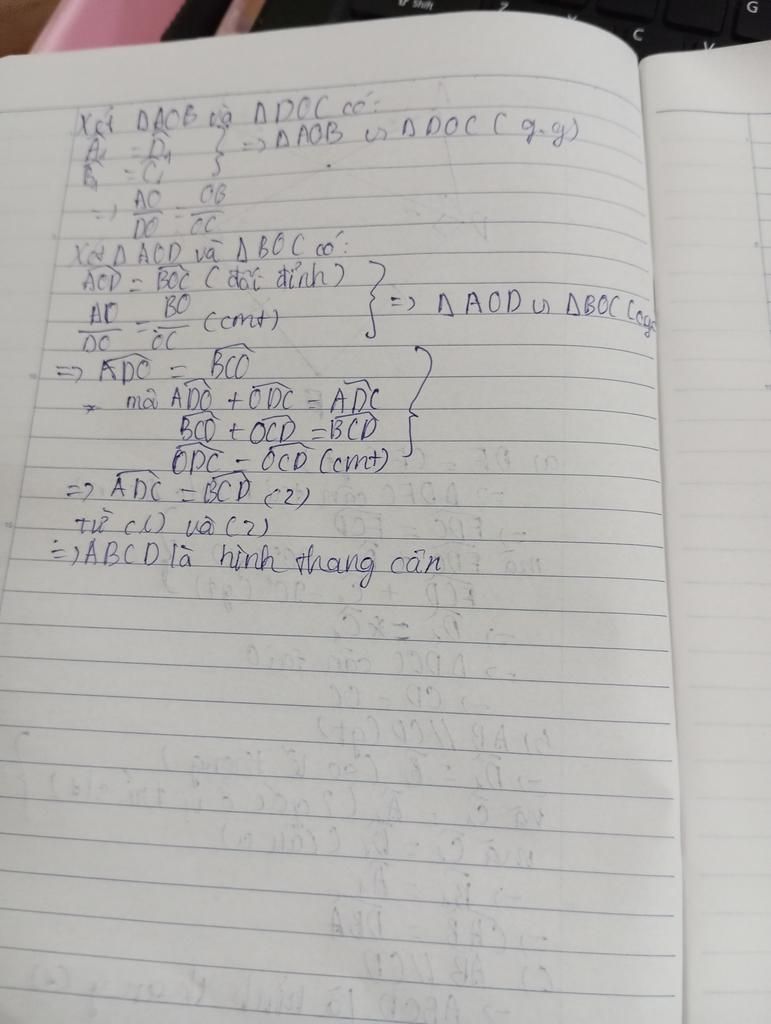 Xét ΔAOB và ΔDOC có:
Â₁ = D̂₁
B̂₁ = Ĉ₁ } => ΔAOB ∽ ΔDOC (g.g)
=> AO/DO = OB/OC
Xét ΔAOD và ΔBOC có:
AOD = BOC (đối đỉnh)
AO/DO = BO/OC (cmt) } => ΔAOD ∽ ΔBOC (cgc
=> ADO = BCO
mà ADO + ODC = ADC
BCO + OCD = BCD
ODC = OCD (cmt) }
=> ADC = BCD (2)
từ (1) và (2)
=> ABCD là hình thang cân